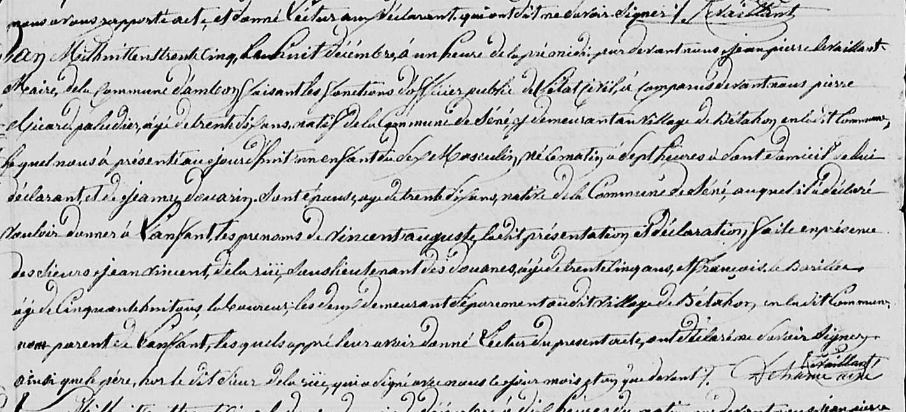 nous avons rapporté acte, et donné Lecture au déclarant, qui ont dit ne savoir Signer /. Levaillant
L'an Mil huit cens trente Cinq, Le huit décembre, à un heure de la pré midi, par devant nous, jean pierre Levaillant
Maire, de la Commune d'ambon, faisant les fonctions d'officier public de l'état Civil, à comparus devant nous pierre
paludier, âgé de trente ans, natif de la Commune de Séné, et demeurant au Village de Bétahon en la dit Commune,
Lequel nous à présenté aujourd'huit un enfant du Sex Masculin, né le matin, à Sept heures à Sont domicil de lui
déclarant, et de jeanne Sont épouse, agé de trente ans, native de la Commune de Séné, auquel il à déclaré
vouloir donner à L'anfant, les prenoms de vincent auguste, la dit présentation et déclaration, faite en présence
des Sieurs jean vincent, dela rüe, Sous lieutenant des douanes, âgé de trente Cinq ans, et françois le Bariller
âgé de Cinquante huit ans Laboureur, les deux demeurant Séparement au dit Village de Bétahon, en la dit Commune,
non parent de L'anfant, les quels appré leur avoir donné Lecture du present acte, ont déclaré ne Savoir Signer,
ainsi que le père, hor le dit Sieur dela rüe, qui à Signé avec nous le jour mois et an que devant /. Levaillant
maire